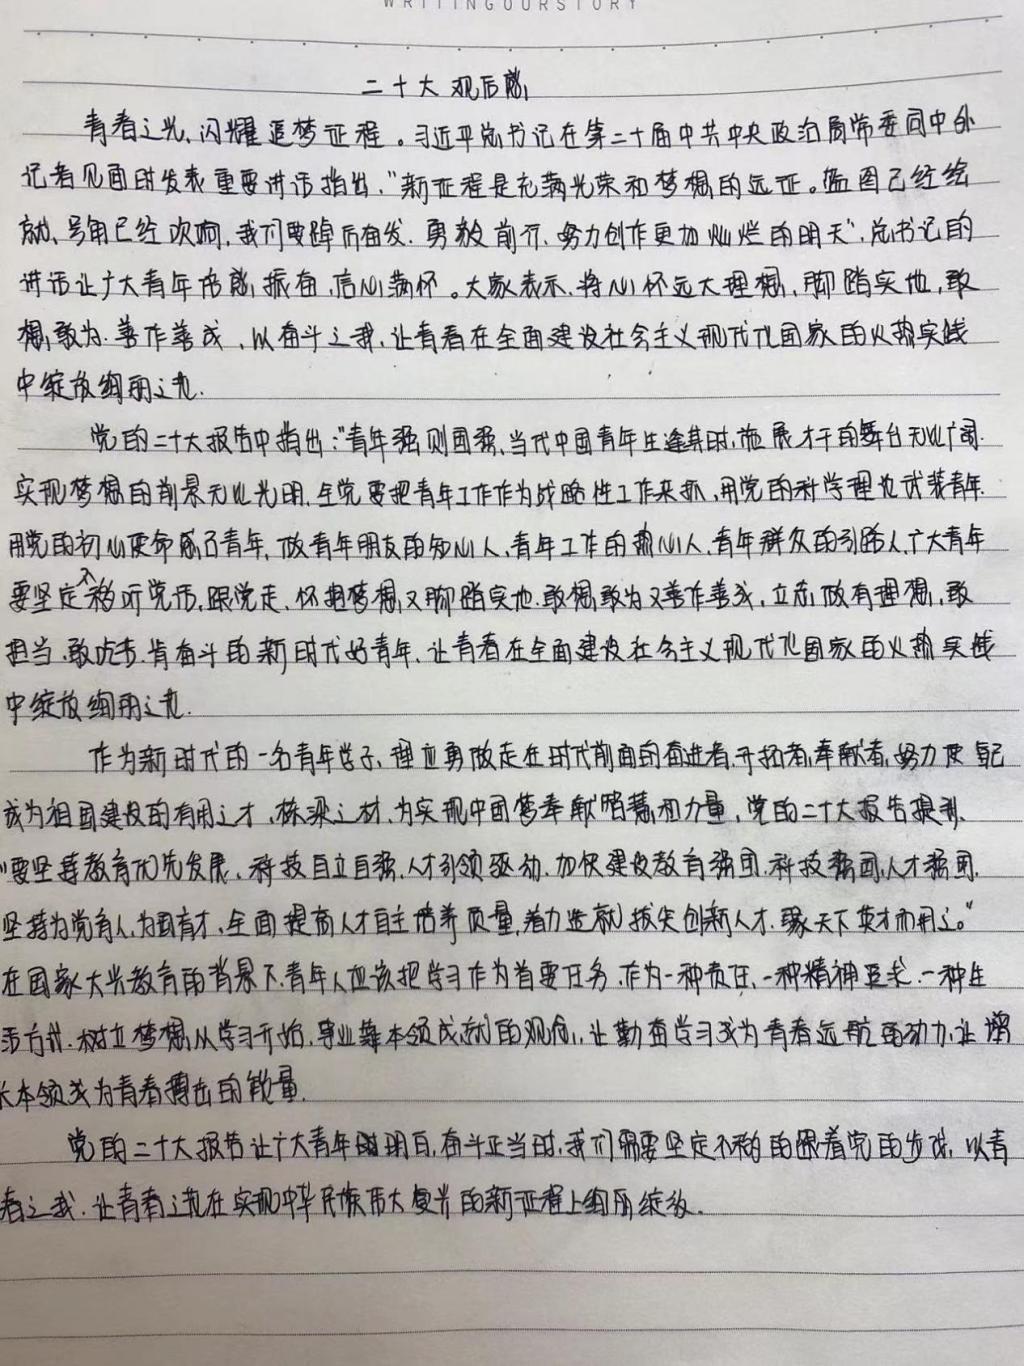 WRITINGOURSTORY
二十大观后感
青春之光,闪耀追梦征程。习近平总书记在第二十届中共中央政治局常委同中外
记者见面时发表重要讲话指出,"新征程是充满光荣和梦想的远征。蓝图已经绘
就,号角已经吹响,我们要踔厉奋发.勇毅前行.努力创作更加灿烂的明天",总书记的
讲话让广大青年倍感振奋,信心满怀。大家表示.将心怀远大理想,脚踏实地,敢
想敢为.善作善成,以奋斗之我.让青春在全面建设社会主义现代化国家的火热实践
中绽放绚丽之花.
党的二十大报告中指出:"青年强则国强,当代中国青年生逢其时,施展才干的舞台无比广阔.
实现梦想的前景无比光明.全党要把青年工作作为战略性工作来抓,用党的科学理论武装青年.
用党的初心使命感召青年,做青年朋友的知心人,青年工作的热心人,青年群众的引路人,广大青年
要坚定不移听党话,跟党走.怀抱梦想又脚踏实地.敢想敢为又善作善成,立志做有理想,敢
担当.敢吃苦.肯奋斗的新时代好青年,让青春在全面建设社会主义现代化国家的火热实践
中绽放绚丽之花.
作为新时代的一名青年学子,理应勇做走在时代前面的奋进者,开拓者,奉献者,努力使自己
成为祖国建设的有用之才,栋梁之材,为实现中国梦奉献智慧和力量,党的二十大报告提到.
"要坚持教育优先发展,科技自立自强.人才引领驱动.加快建设教育强国.科技强国,人才强国.
坚持为党育人,为国育才,全面提高人才自主培养质量,着力造就拔尖创新人才.聚天下英才而用之。"
在国家大兴教育的背景下.青年人应该把学习作为首要任务.作为一种责任,一种精神追求.一种生
活方式.树立梦想从学习开始,事业靠本领成就的观念,让勤奋学习成为青春远航的动力,让增
长本领成为青春搏击的能量.
党的二十大报告让广大青年明白,奋斗正当时,我们需要坚定不移的跟着党的步伐,以青
春之我.让青春之花在实现中华民族伟大复兴的新征程上绚丽绽放.